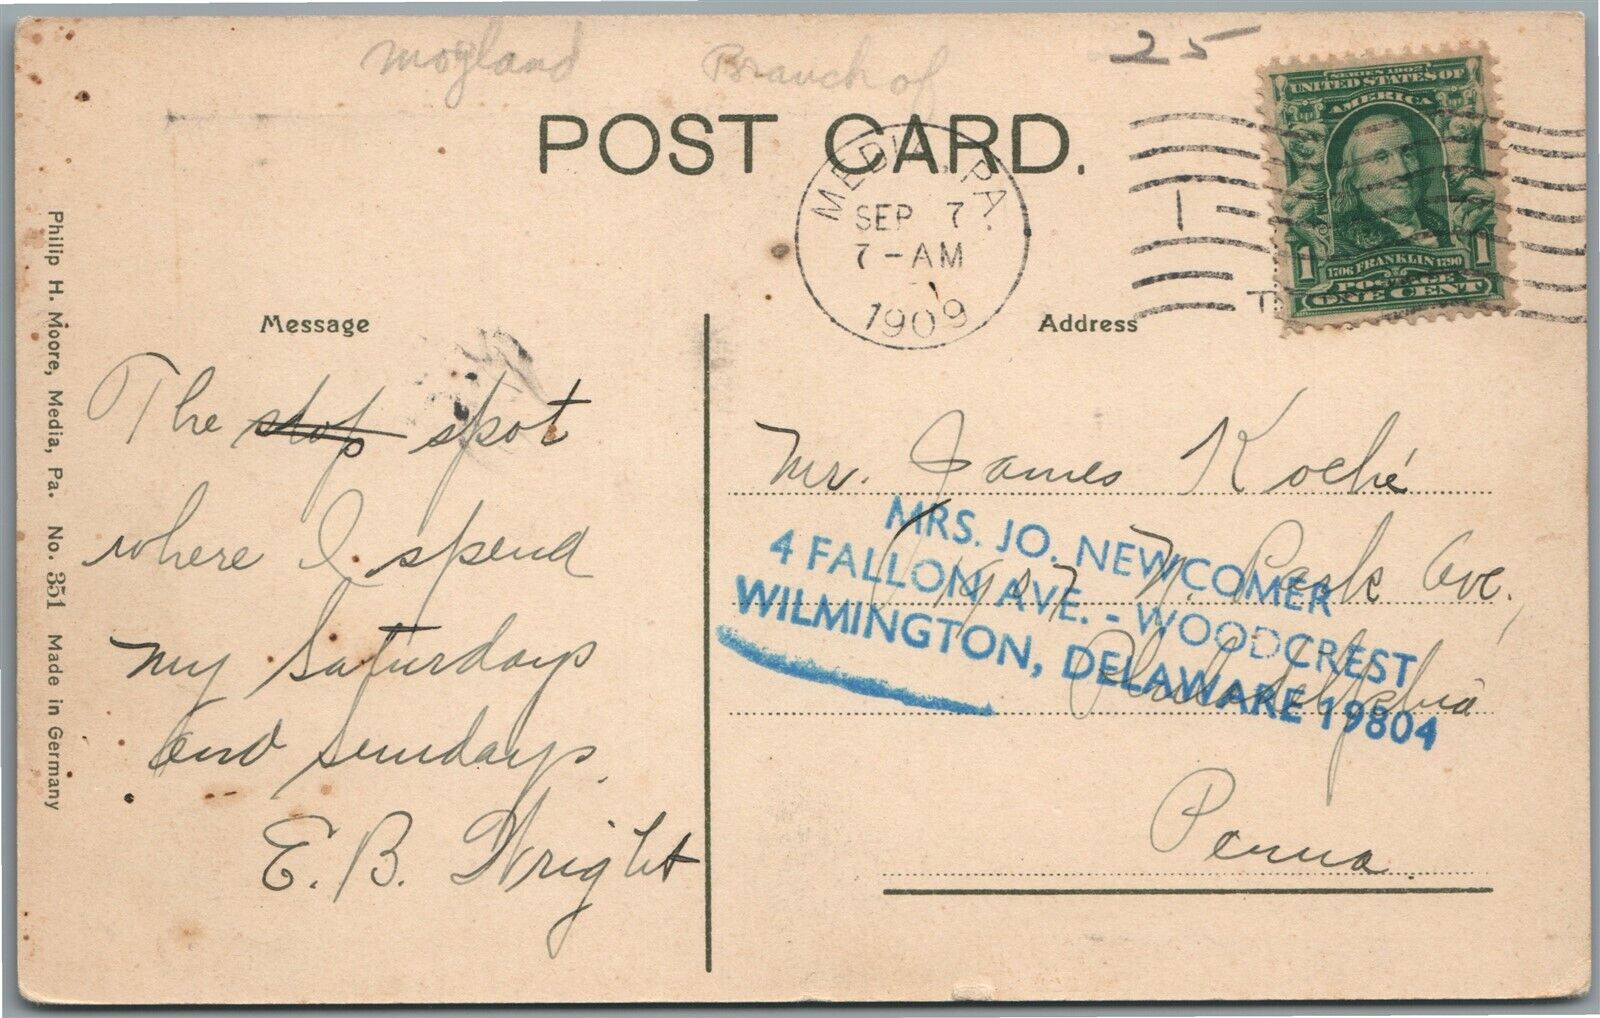 mogland Branch of 25
POST CARD.
SERIES 1902
UNITED STATES OF
AMERICA
1 1706 FRANKLIN 1790 1
POSTAGE
ONE CENT
MEDIA, PA.
SEP 7
7-AM
1909
1
Message
Address
The stop spot
where I spend
my Saturdays
and Sundays.
E. B. Wright
Mr. James Koché
N. Park Ave.,
Philadelphia
Penna.
MRS. JO. NEWCOMER
4 FALLON AVE. - WOODCREST
WILMINGTON, DELAWARE 19804
Philip H. Moore, Media, Pa. No. 351 Made in Germany